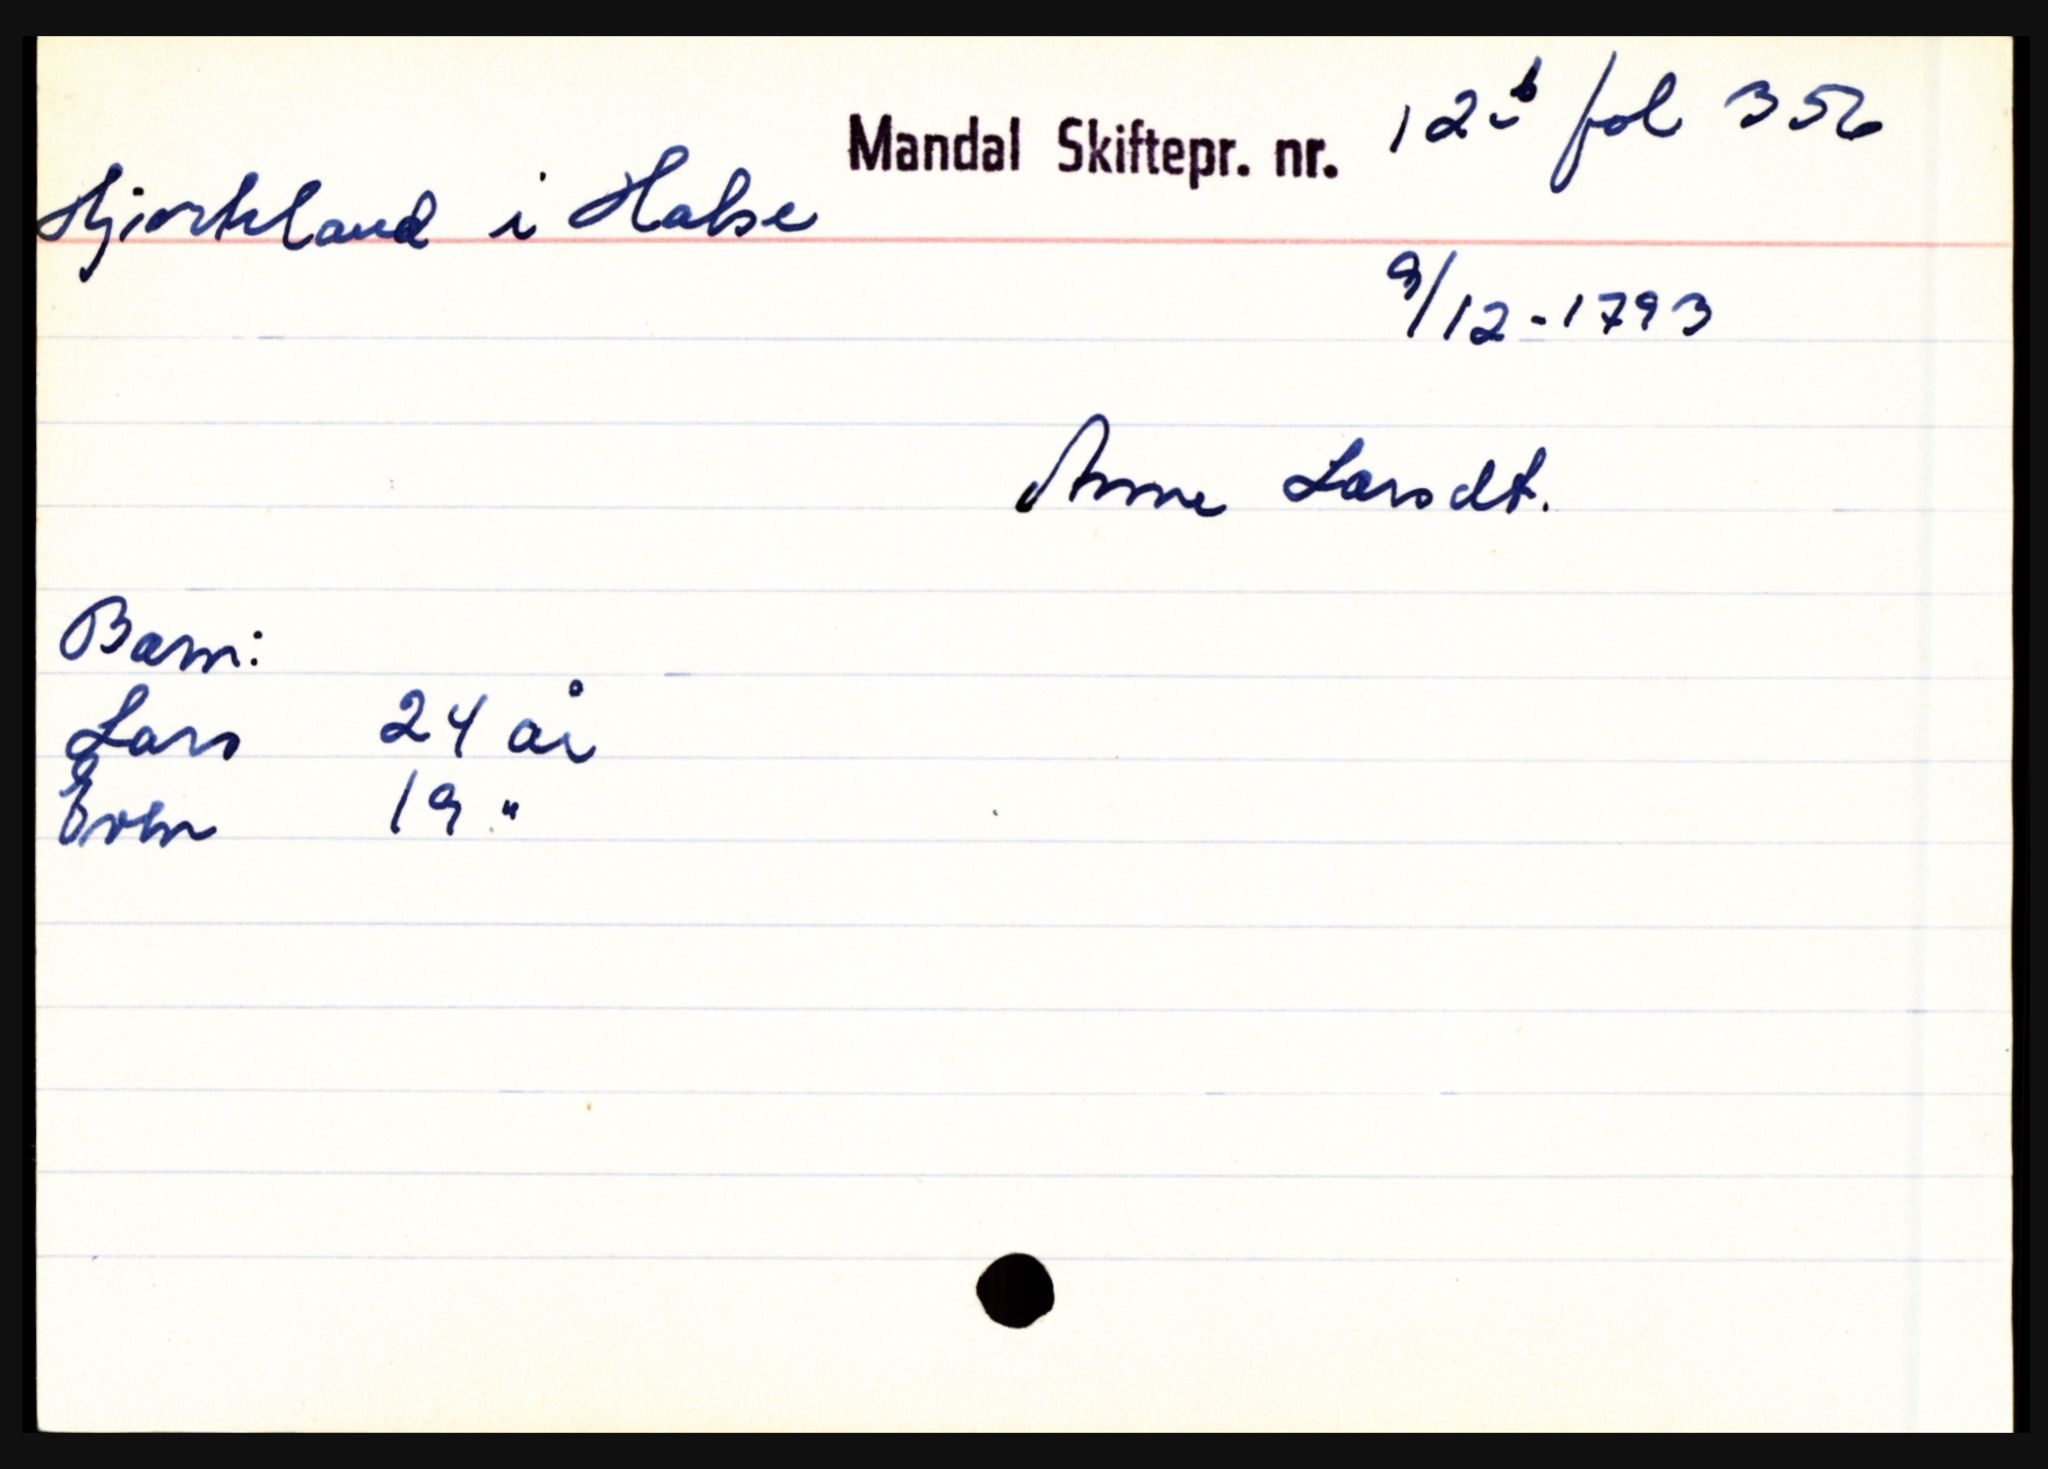 Mandal Skiftepr. nr. 12b fol 356
Hjorteland i Halse
9/12-1793
Anne Larsdt.
Barn:
Lars 24 år
Even 19 "